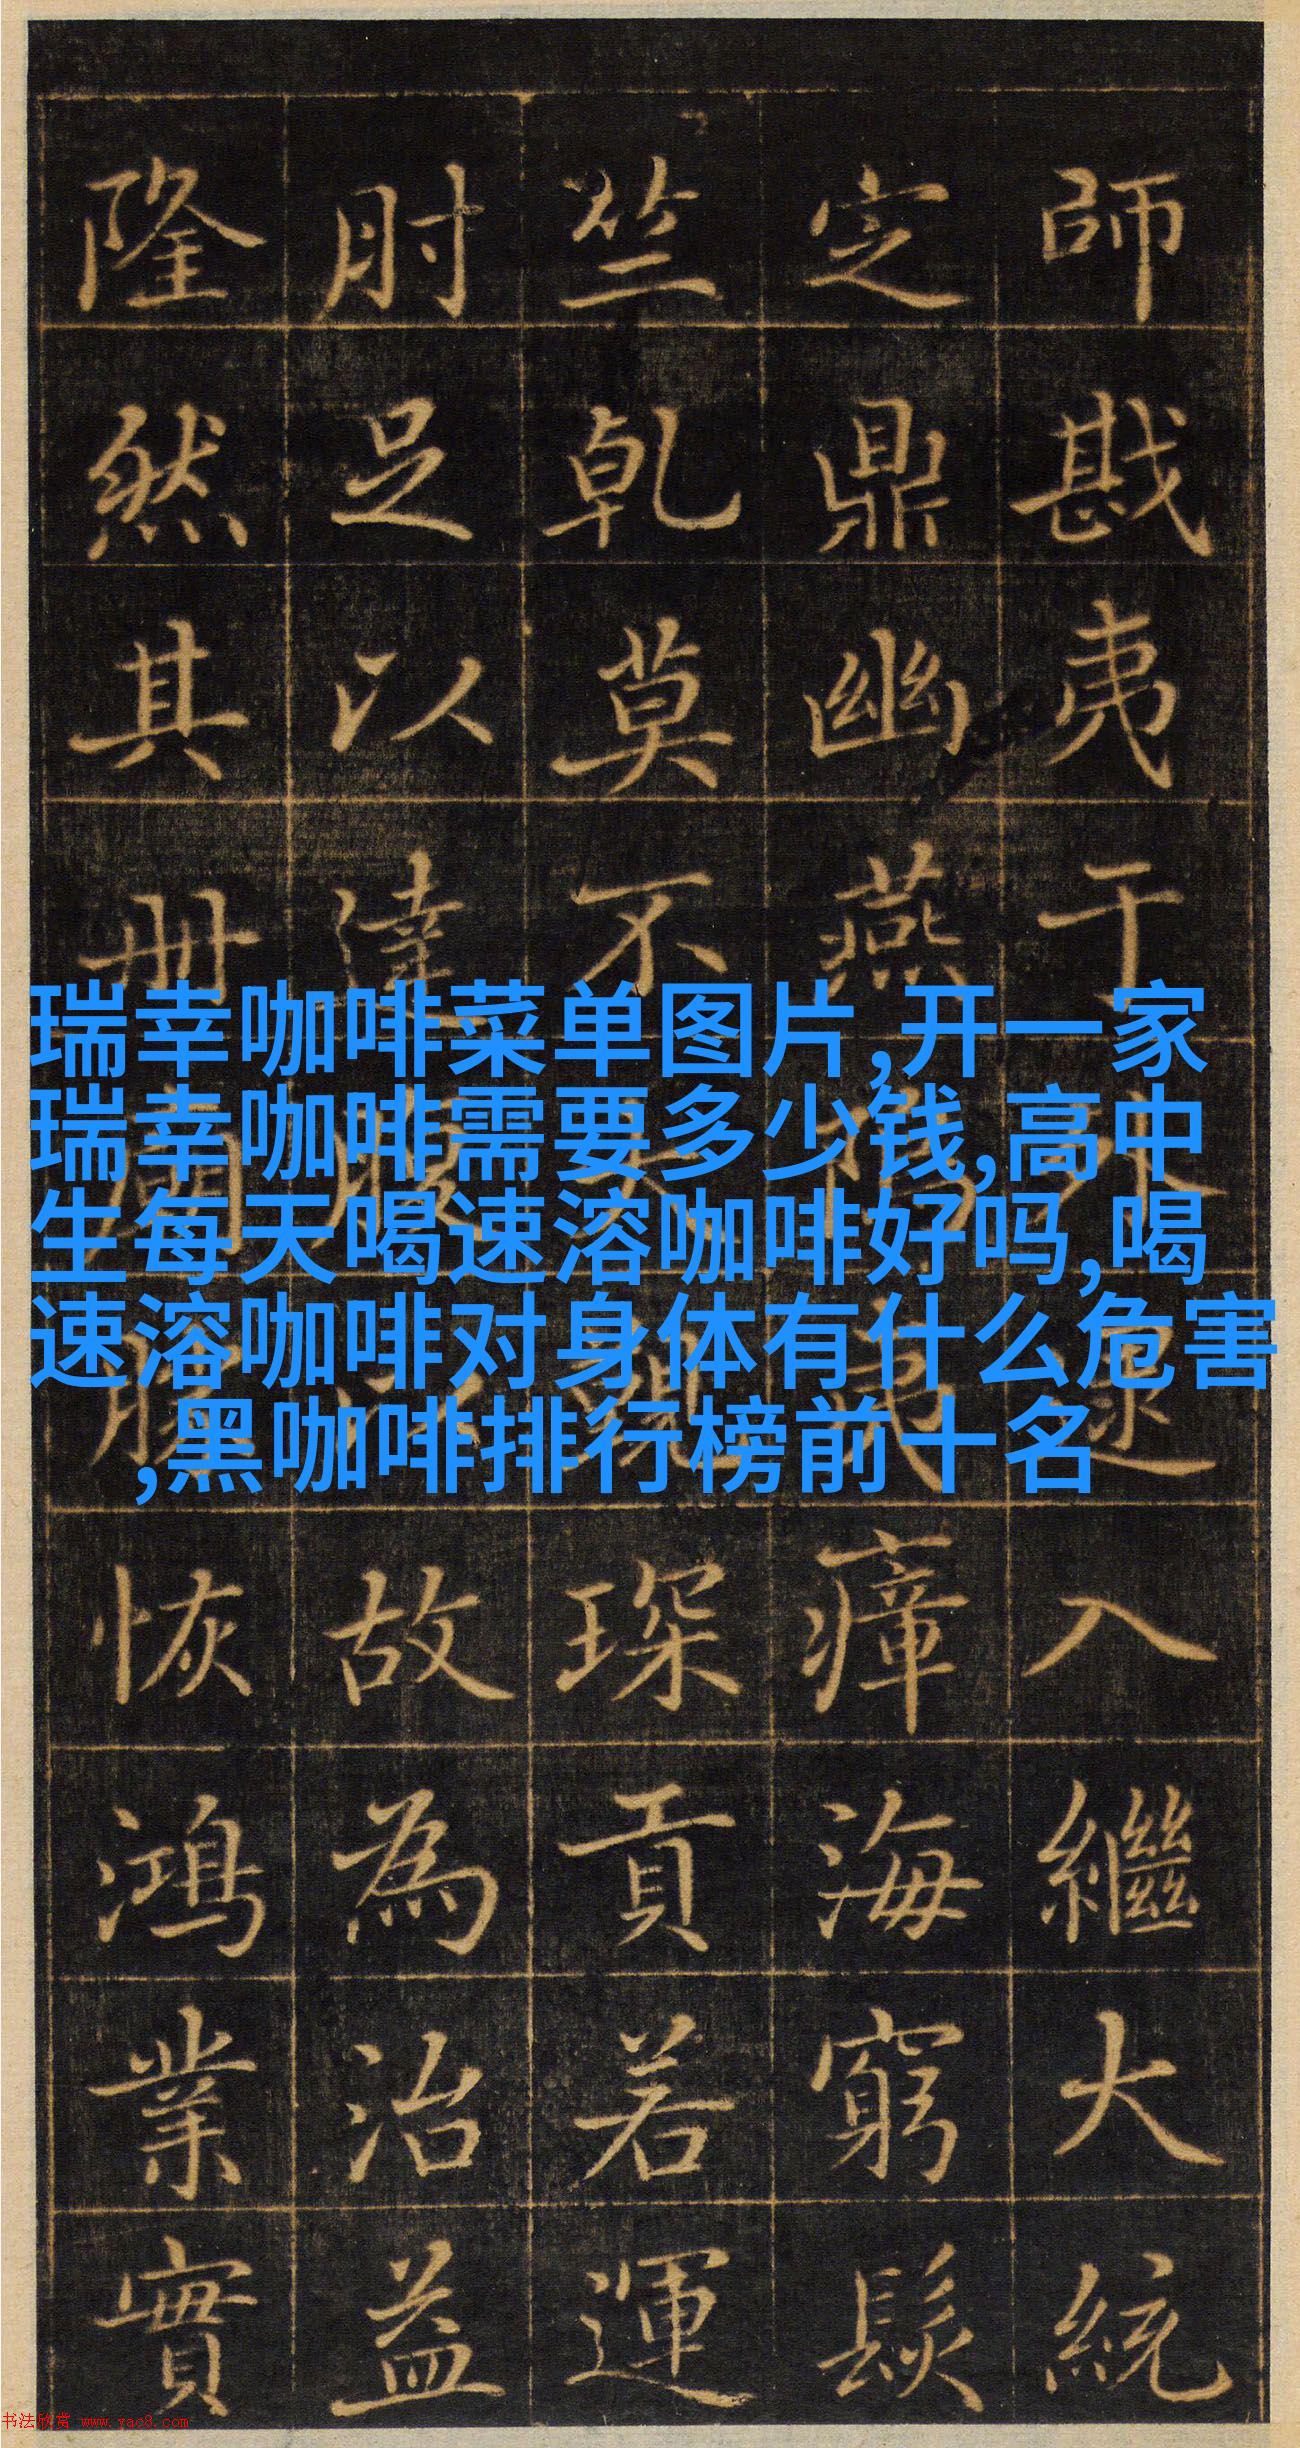 瑞幸咖啡菜单图片,开一家
瑞幸咖啡需要多少钱,高中
生每天喝速溶咖啡好吗,喝
速溶咖啡对身体有什么危害
,黑咖啡排行榜前十名
師戡夷于逮入繼大統
定鼎幽燕瘴海窮髮
竺乾莫不琛貢若運
肘足以達腹故為治益
隆然其册恢鴻業實
书法欣赏 www.yac8.com